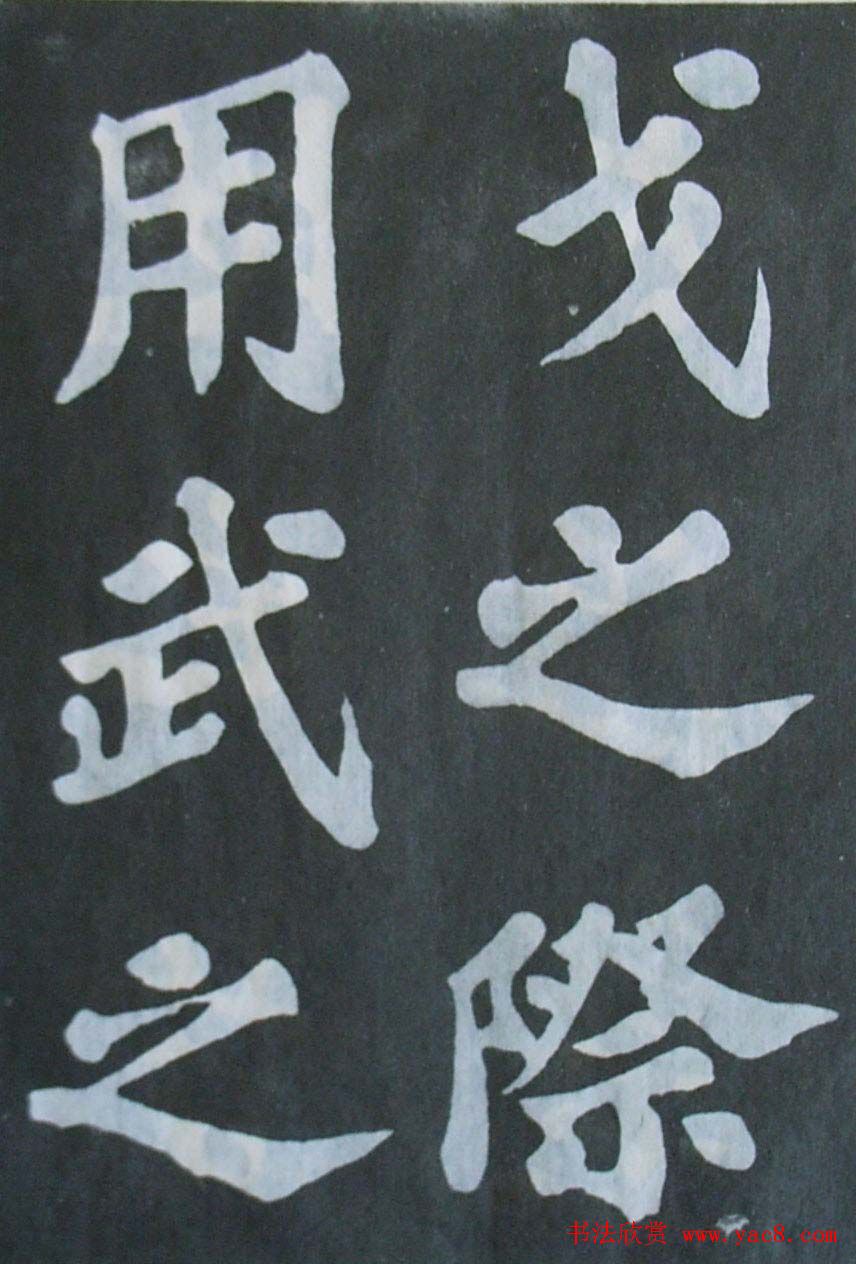 戈之際
用武之
书法欣赏 www.yac8.com